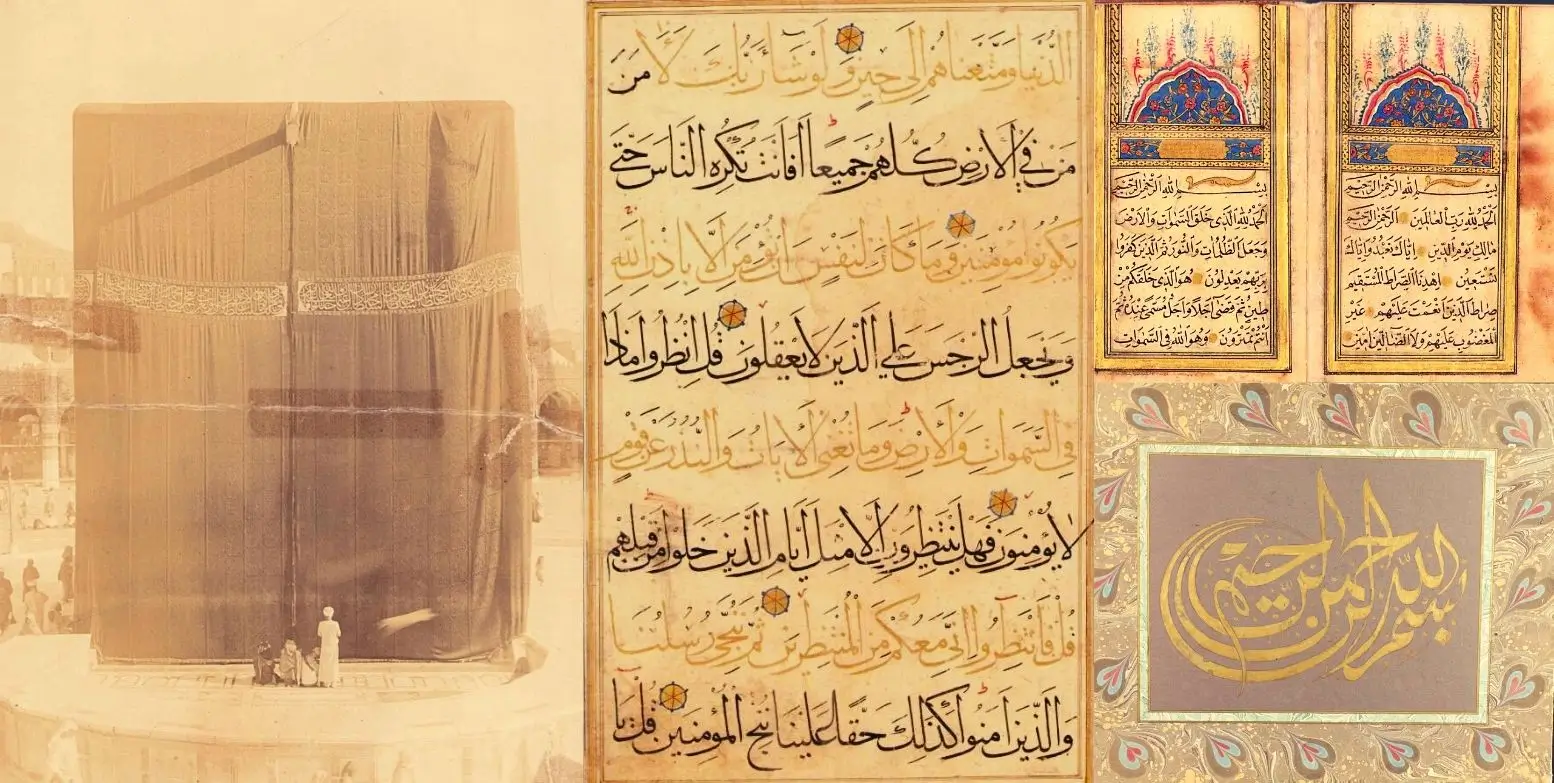 الدنيا ومتعناهم الى حين ولو شاء ربك لامن
من في الارض كلهم جميعا افانت تكره الناس حتى
يكونوا مومنين وما كان لنفس ان تؤمن الا باذن الله
ويجعل الرجس على الذين لا يعقلون قل انظروا ماذا
في السموات والارض وما تغني الايات والنذر عن قوم
لا يؤمنون فهل ينتظرون الا مثل ايام الذين خلوا من قبلهم
قل فانتظروا اني معكم من المنتظرين ثم ننجي رسلنا
والذين امنوا كذلك حقا علينا ننج المؤمنين قل يا
بسم الله الرحمن الرحيم
الحمد لله رب العالمين الرحمن الرحيم
مالك يوم الدين اياك نعبد واياك
نستعين اهدنا الصراط المستقيم
صراط الذين انعمت عليهم غير
المغضوب عليهم ولا الضالين امين
بسم الله الرحمن الرحيم
الحمد لله الذي خلق السموات والارض
وجعل الظلمات والنور ثم الذين كفروا
بربهم يعدلون هو الذي خلقكم من
طين ثم قضى اجلا واجل مسمى عنده ثم
انتم تمترون وهو الله في السموات
بسم الله الرحمن الرحيم